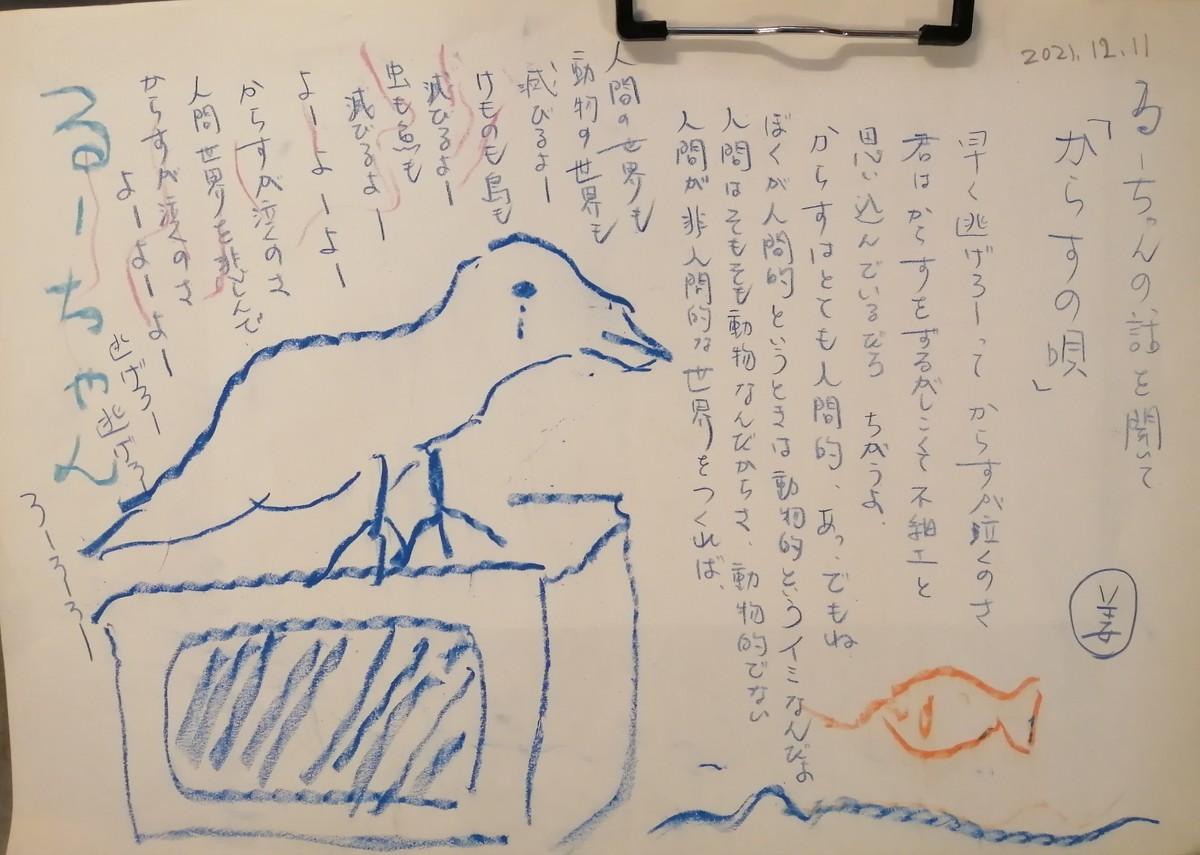 2021.12.11
るーちゃんの話を聞いて
「からすの唄」
早く逃げろーって からすが泣くのさ
君はからすをずるがしこくて不細工と
思い込んでいるだろ ちがうよ、
からすはとても人間的、あっ、でもね
ぼくが人間的というときは動物的というイミなんだよ
人間はそもそも動物なんだからさ、動物的でない
人間が非人間的な世界をつくれば、
人間の世界も
動物の世界も
滅びるよー
けものも鳥も
滅びるよー
虫も魚も
滅びるよー
よーよーよー
からすが泣くのさ
人間世界を悲しんで
からすが泣くのさ
よーよーよー
逃げろー
逃げろ
ろーろーろー
るーちゃん
姜